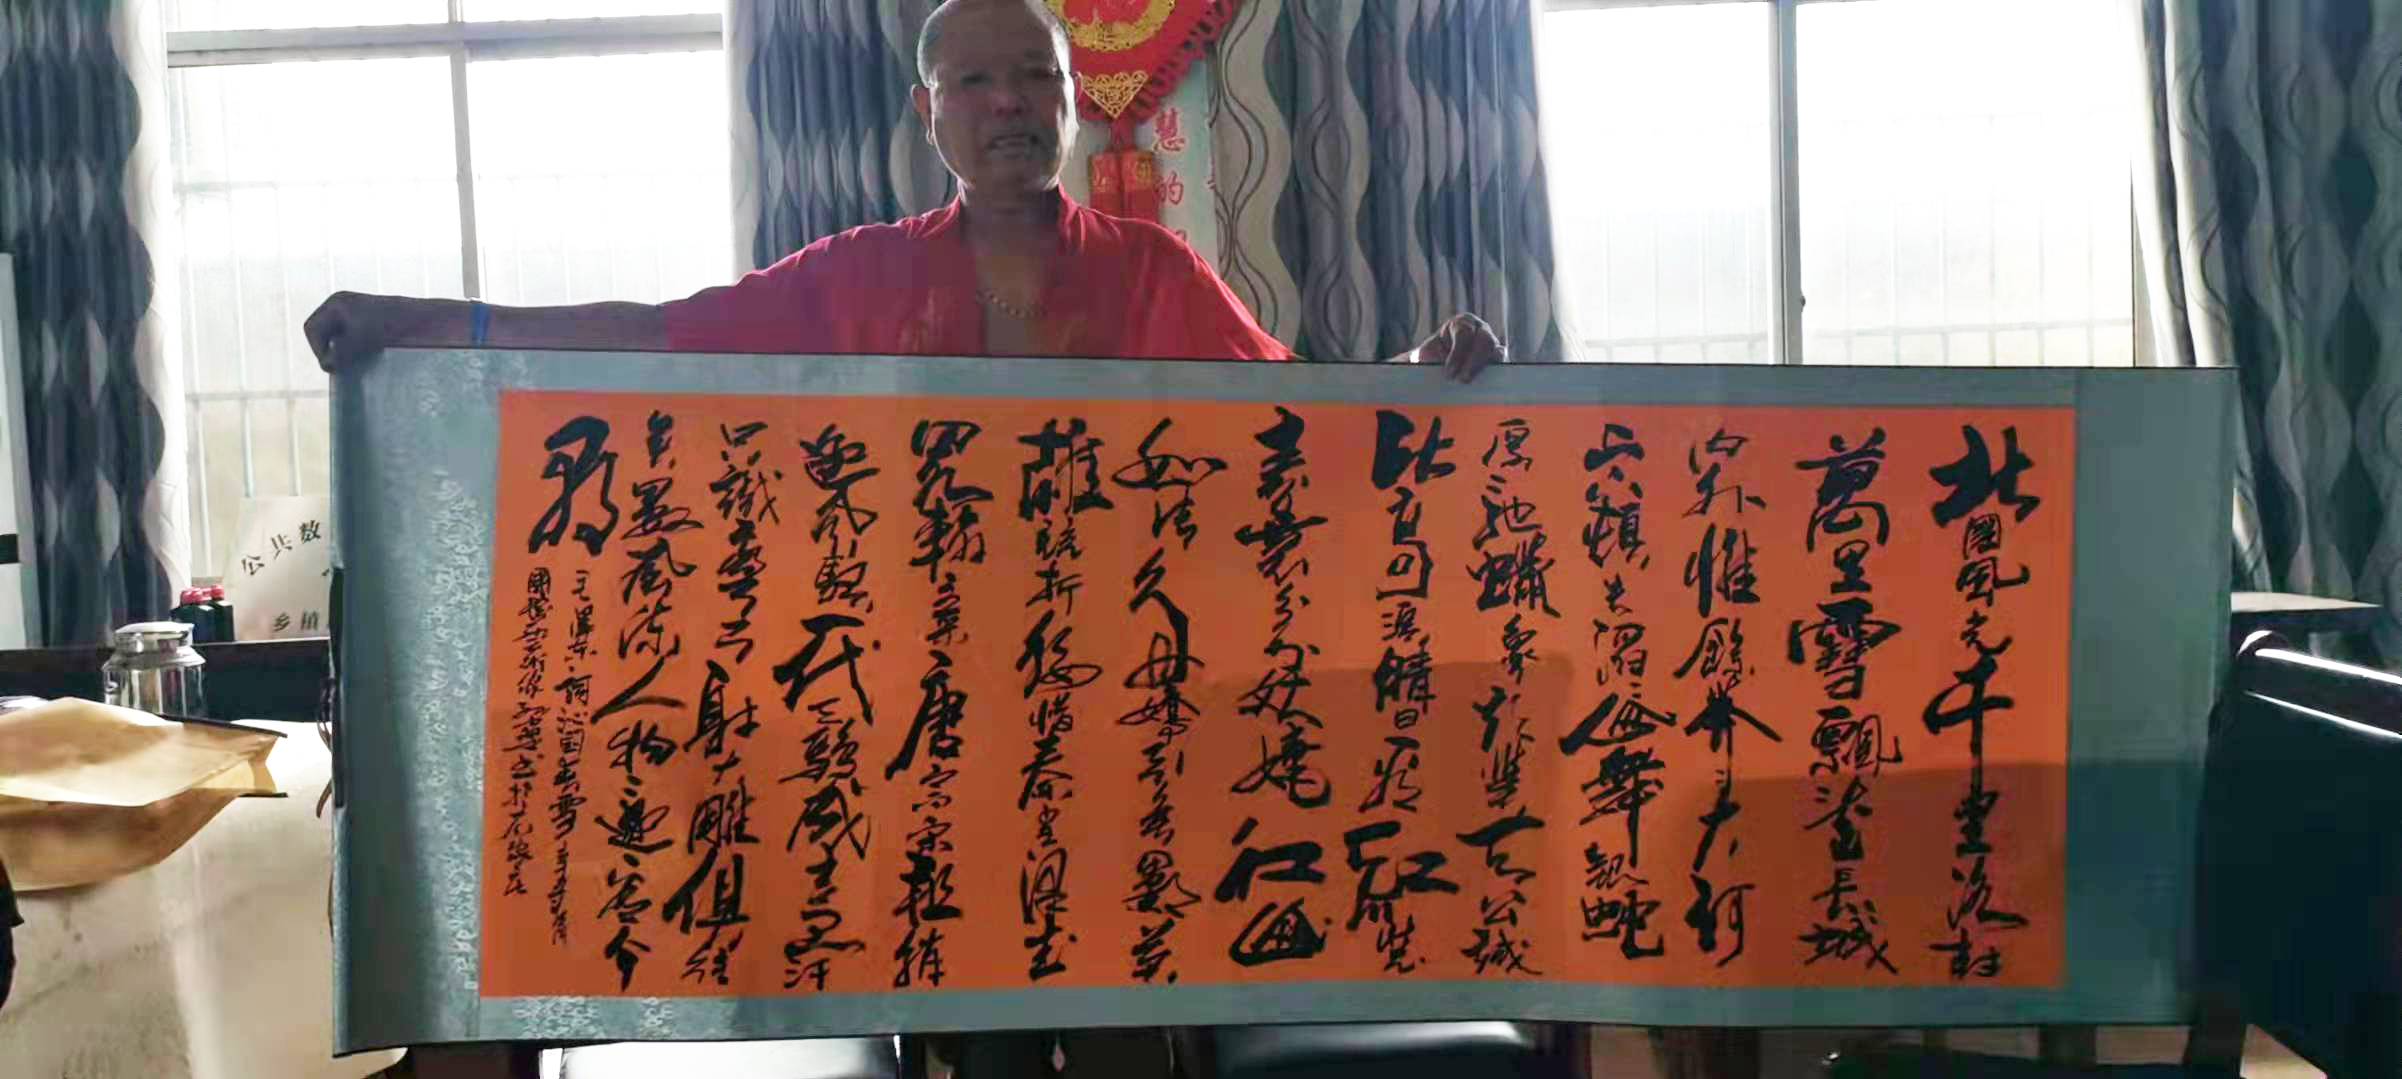 慧的
公共数
乡镇
北國風光千里冰封
萬里雪飄望長城
内外惟餘莽〻大河
上下頓失滔〻山舞銀蛇
原馳蠟象欲與天公試
比高須晴日看紅裝
素裹分外妖嬈江山
如此多嬌引無數英
雄競折腰惜秦皇漢武
略輸文采唐宗宋祖稍
遜風騷一代天驕成吉思汗
只識彎弓射大雕俱往
矣數風流人物還看今
朝
毛澤東詞沁園春雪